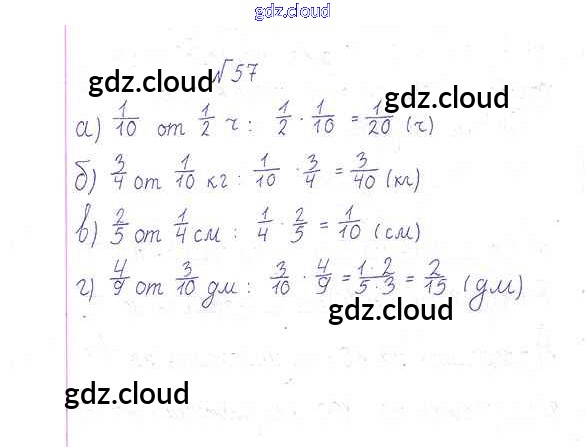 gdz.cloud
№57
gdz.cloud
gdz.cloud
а) 1/10 от 1/2 ч : 1/2 · 1/10 = 1/20 (ч)
б) 3/4 от 1/10 кг : 1/10 · 3/4 = 3/40 (кг)
в) 2/5 от 1/4 см : 1/4 · 2/5 = 1/10 (см)
г) 4/9 от 3/10 дм : 3/10 · 4/9 = 1·2/5·3 = 2/15 (дм)
gdz.cloud
gdz.cloud